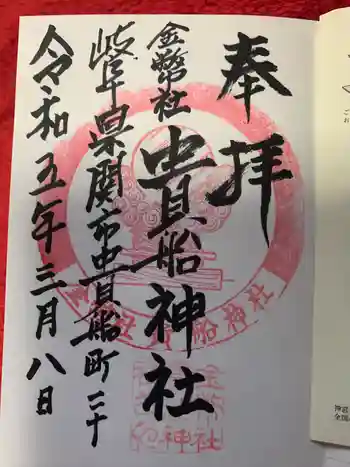 奉拝
金幣社
貴船神社
岐阜県関市貴船町二十
令和五年三月八日
船神社
神社